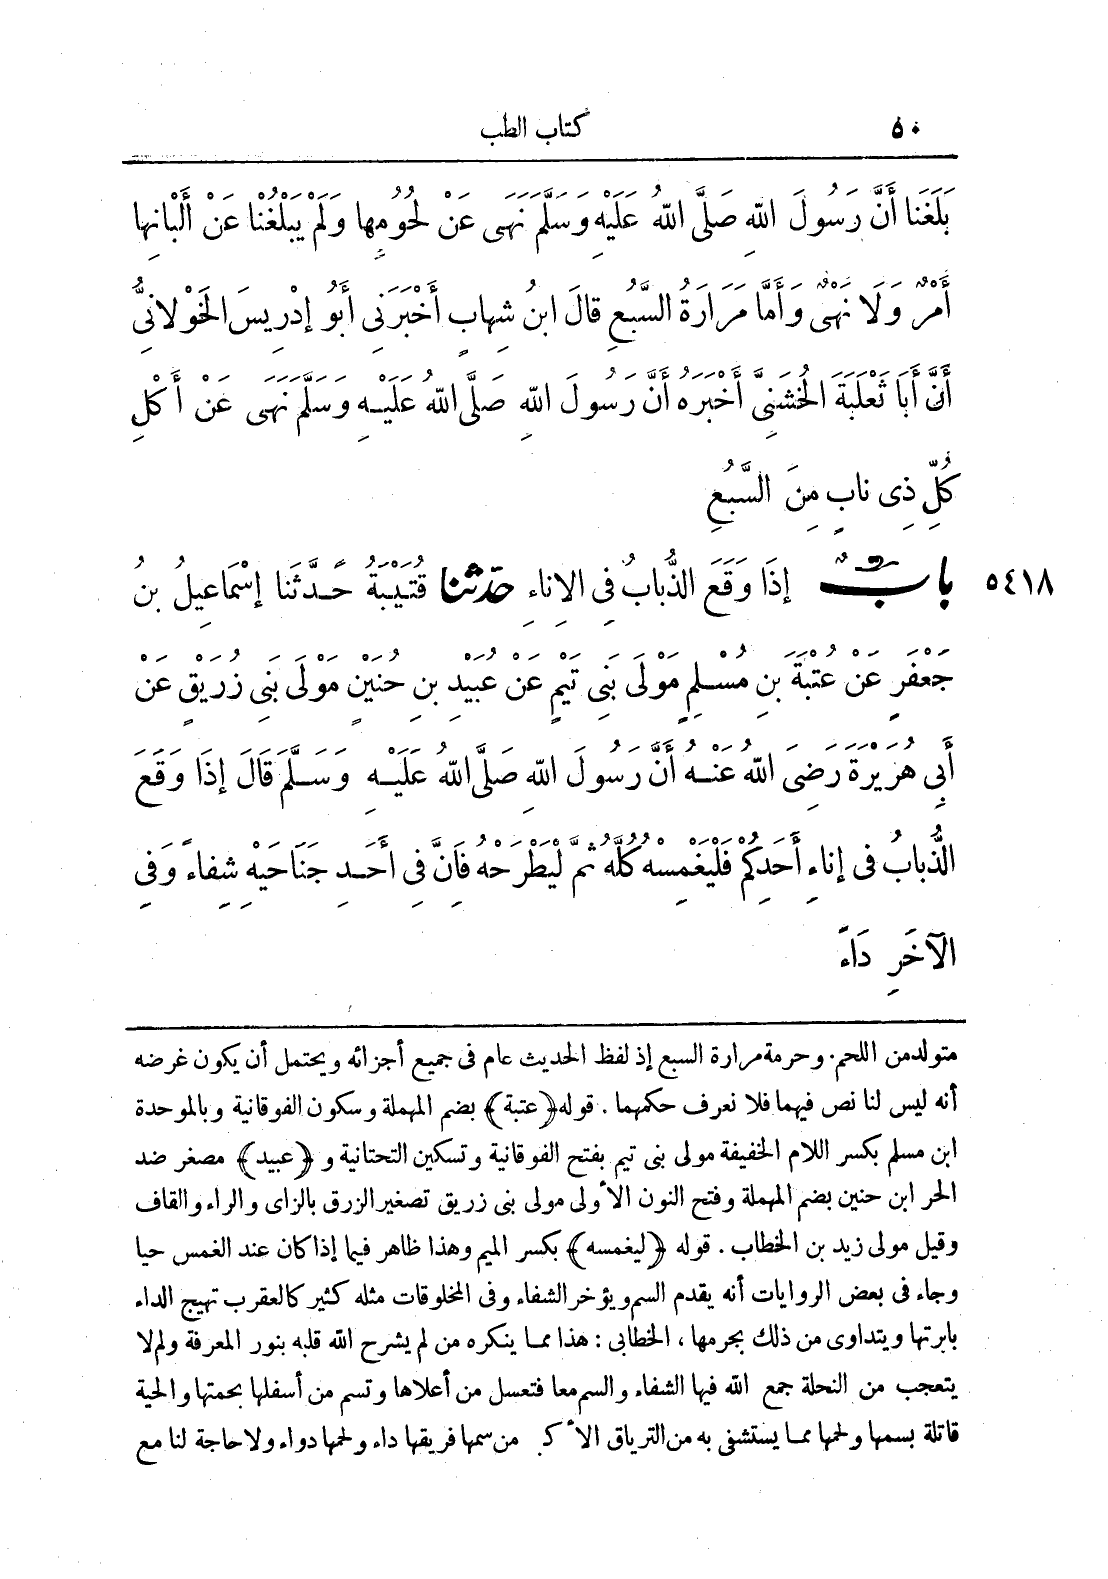 ٥٠ كتاب الطب
بَلَغَنَا أَنَّ رَسُولَ اللهِ صَلَّى اللهُ عَلَيْهِ وَسَلَّمَ نَهَى عَنْ لُحُومِهَا وَلَمْ يَبْلُغْنَا عَنْ أَلْبَانِهَا
أَمْرٌ وَلَا نَهْىٌ وَأَمَّا مَرَارَةُ السَّبُعِ قَالَ ابنُ شِهَابٍ أَخْبَرَنِى أَبُو إدْرِيسَ الخَوْلَانِىُّ
أَنَّ أَبَا ثَعْلَبَةَ الخُشَنِىَّ أَخْبَرَهُ أَنَّ رَسُولَ اللهِ صَلَّى اللهُ عَلَيْهِ وَسَلَّمَ نَهَى عَنْ أَكْلِ
كُلِّ ذِى نَابٍ مِنَ السَّبُعِ
٥٤١٨ بابٌ إذَا وَقَعَ الذُّبَابُ فِى الإناءِ حدثنا قُتَيْبَةُ حَدَّثَنَا إسْمَاعِيلُ بنُ
جَعْفَرٍ عَنْ عُتْبَةَ بنِ مُسْلِمٍ مَوْلَى بَنِى تَيْمٍ عَنْ عُبَيْدِ بنِ حُنَيْنٍ مَوْلَى بَنِى زُرَيْقٍ عَنْ
أَبِى هُرَيْرَةَ رَضِىَ اللهُ عَنْهُ أَنَّ رَسُولَ اللهِ صَلَّى اللهُ عَلَيْهِ وَسَلَّمَ قَالَ إذَا وَقَعَ
الذُّبَابُ فِى إنَاءِ أَحَدِكُمْ فَلْيَغْمِسْهُ كُلَّهُ ثُمَّ لْيَطْرَحْهُ فَانَّ فِى أَحَدِ جَنَاحَيْهِ شِفَاءً وَفِى
الآخَرِ دَاءً
متولد من اللحم . وحرمة مرارة السبع إذ لفظ الحديث عام فى جميع أجزائه ويحتمل أن يكون غرضه
أنه ليس لنا نص فيهما فلا نعرف حكمهما . قوله ﴿عتبة﴾ بضم المهملة وسكون الفوقانية وبالموحدة
ابن مسلم بكسر اللام الخفيفة مولى بنى تيم بفتح الفوقانية وتسكين التحتانية و ﴿عبيد﴾ مصغر ضد
الحر ابن حنين بضم المهملة وفتح النون الأولى مولى بنى زريق تصغير الزرق بالزاى والراء والقاف
وقيل مولى زيد بن الخطاب . قوله ﴿ليغمسه﴾ بكسر الميم وهذا ظاهر فيما إذا كان عند الغمس حيا
وجاء فى بعض الروايات أنه يقدم السم ويؤخر الشفاء وفى المخلوقات مثله كثير كالعقرب تهيج الداء
بابرتها ويتداوى من ذلك بجرمها ، الخطابى : هذا مما ينكره من لم يشرح الله قلبه بنور المعرفة ولم لا
يتعجب من النحلة جمع الله فيها الشفاء والسم معا فتعسل من أعلاها وتسم من أسفلها بحمتها والحية
قاتلة بسمها ولحمها مما يستشفى به من الترياق من سمها فريقها داء ولحمها دواء ولا حاجة لنا مع